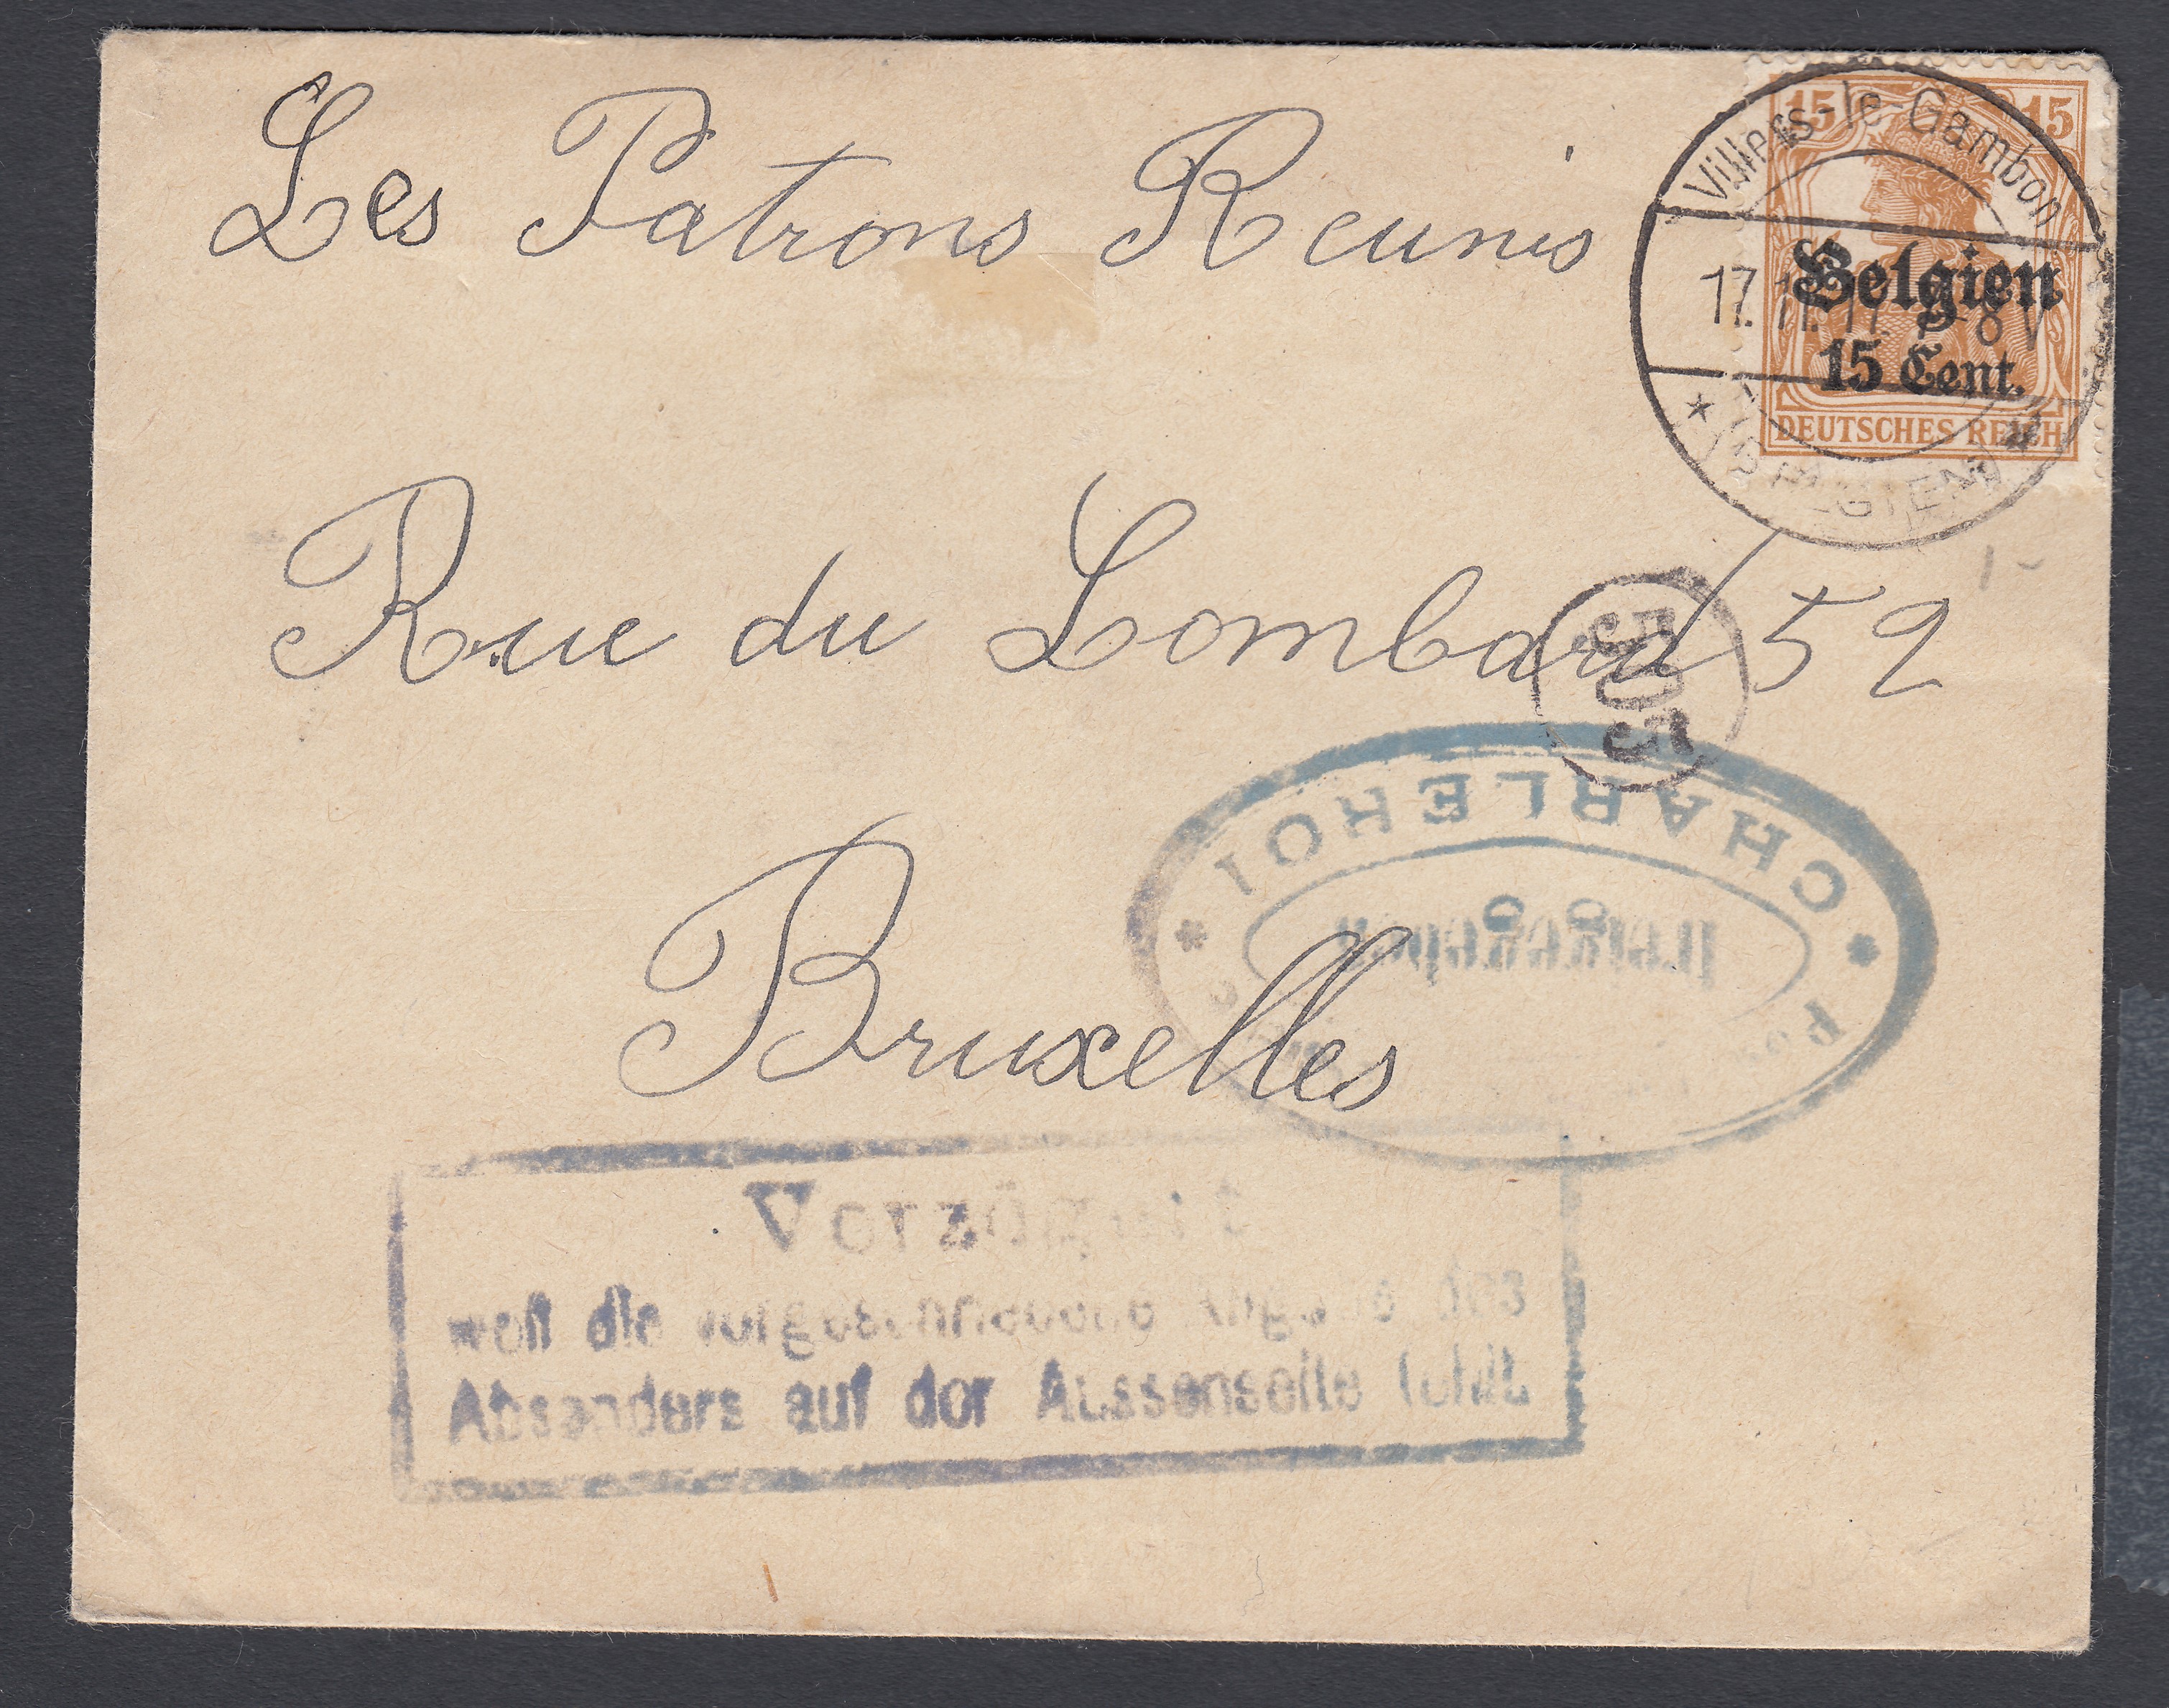 Les Patrons Reunis
Villers-le-Gambon
15 15
17. 11. 17. 7-8 V
Belgien
15 Cent.
DEUTSCHES REICH
* (BELGIEN) *
Rue du Lombard 52
CHARLEROI
Bruxelles
Verzögert
weil die vorgeschriebene Angabe des
Absenders auf der Aussenseite fehlt.